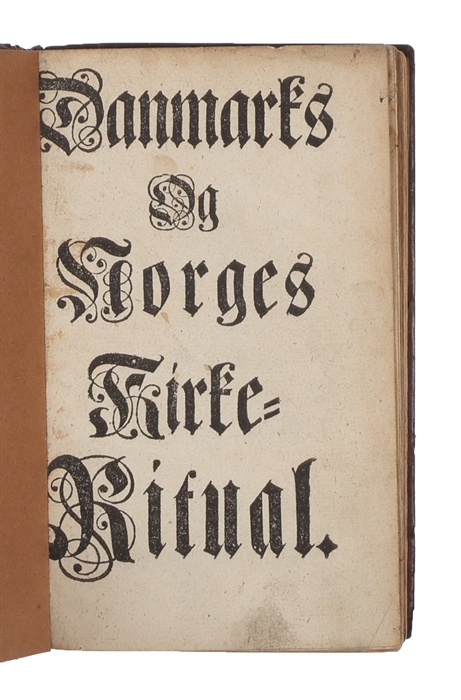 Danmarks
Og
Norges
Kirke=
Ritual.